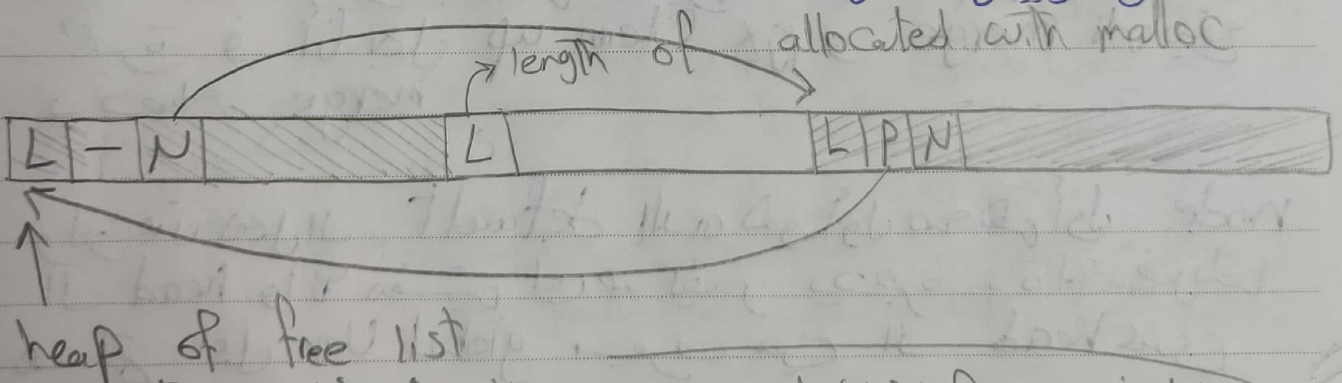 length of allocated with malloc
L - N L L P N
heap of free list